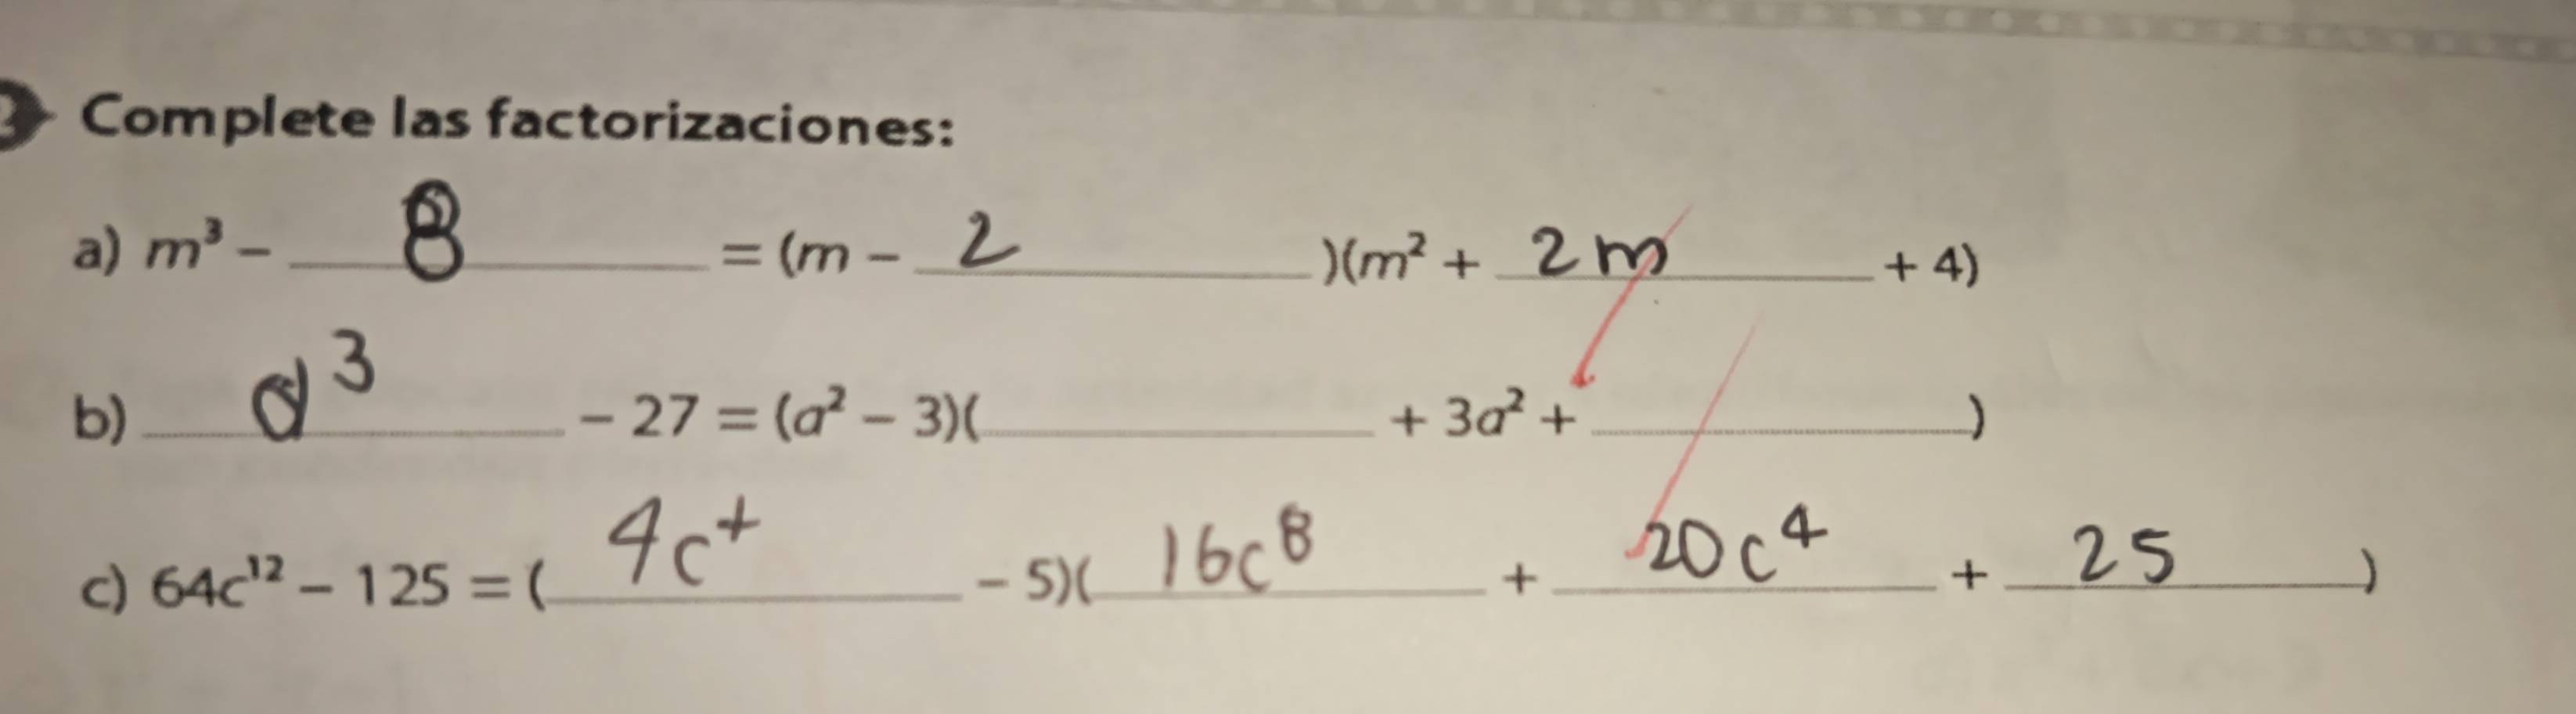 Complete las factorizaciones:
a) m³ – 8 = (m – 2 )(m² + 2m + 4)
b) a³ – 27 = (a² – 3)( + 3a² + )
c) 64c¹² – 125 = ( 4c⁴ – 5)( 16c⁸ + 20c⁴ + 25 )